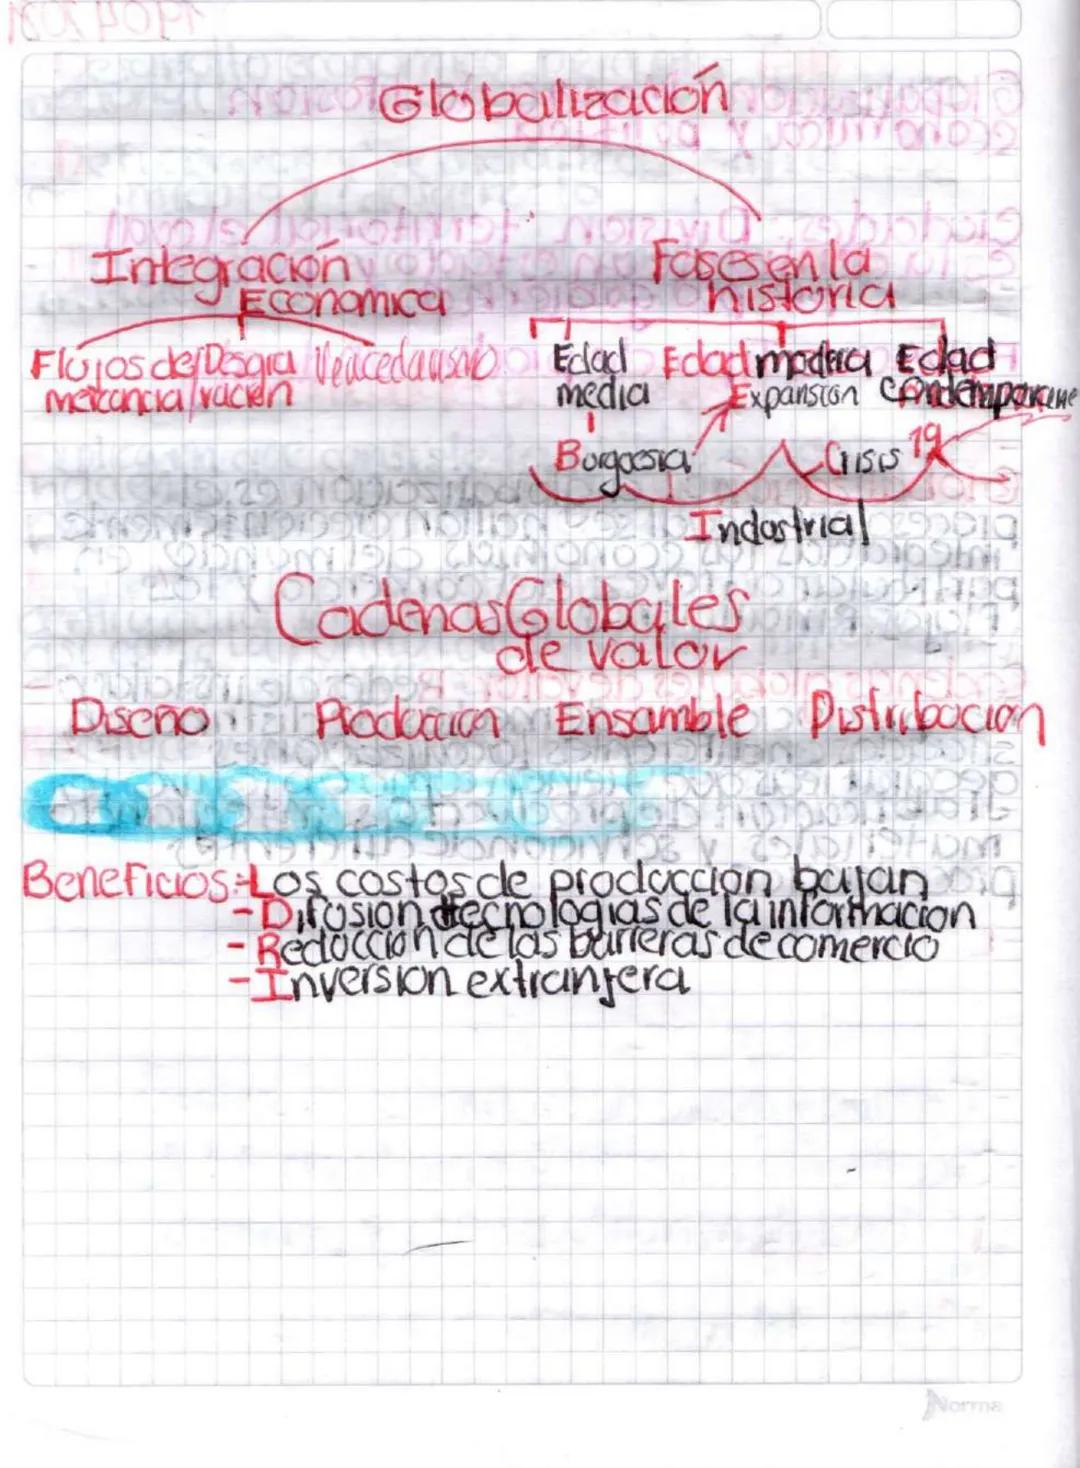 Globalización
Integración
Economica
Fases en la
historia
Flujos de
mercancia
Desgra
vacien
Edad
media
Edad modera
Expansion
Edad
Burgoesia
Crisis
19
Indostrial
Cadenas Globales
de valor
Diseño Producción Ensamble Distribocion
Beneficios: -Los costos de produccion bajan
-Difusion tecnologias de la informacion
-Reduccion de las barreras de comercio
-Inversion extranjera
Norma